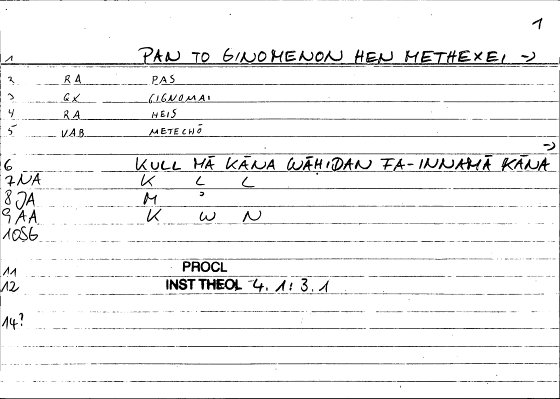 1
1 PAN TO GINOMENON HEN METHEXEI →
2 RA PAS
3 GX GIGNOMAI
4 RA HEIS
5 VAB METECHŌ
→
6 KULL MĀ KĀNA WĀḤIDAN FA-INNAMĀ KĀNA
7 NA K L L
8 JA M ʾ
9 AA K W N
10 SG
11 PROCL
12 INST THEOL 4. 1: 3. 1
14?